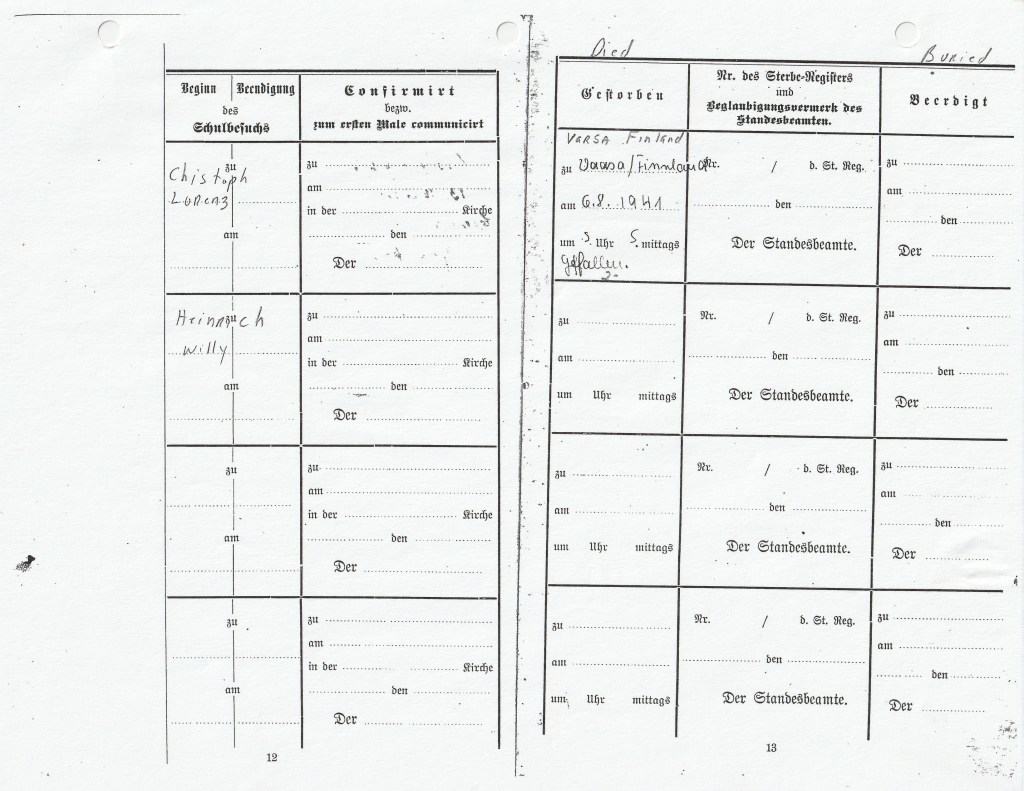 Died
Buried
Beginn Beendigung
des
Schulbesuchs
Confirmirt
bezw.
zum ersten Male communicirt
Gestorben
Nr. des Sterbe-Registers
und
Beglaubigungsvermerk des
Standesbeamten.
Beerdigt
zu
Chistoph
Lorenz
am
zu
am
in der Kirche
den
Der
Varsa Finland
zu Vaasa/Finnland
am 6.8. 1941
um 5 Uhr 5. mittags
Gefallen.
Nr. / d. St. Reg.
den
Der Standesbeamte.
zu
am
den
Der
zu
Heinrich
Willy
am
zu
am
in der Kirche
den
Der
zu
am
um Uhr mittags
Nr. / d. St. Reg.
den
Der Standesbeamte.
zu
am
den
Der
zu
am
zu
am
in der Kirche
den
Der
zu
am
um Uhr mittags
Nr. / d. St. Reg.
den
Der Standesbeamte.
zu
am
den
Der
zu
am
zu
am
in der Kirche
den
Der
zu
am
um Uhr mittags
Nr. / d. St. Reg.
den
Der Standesbeamte.
zu
am
den
Der
12
13